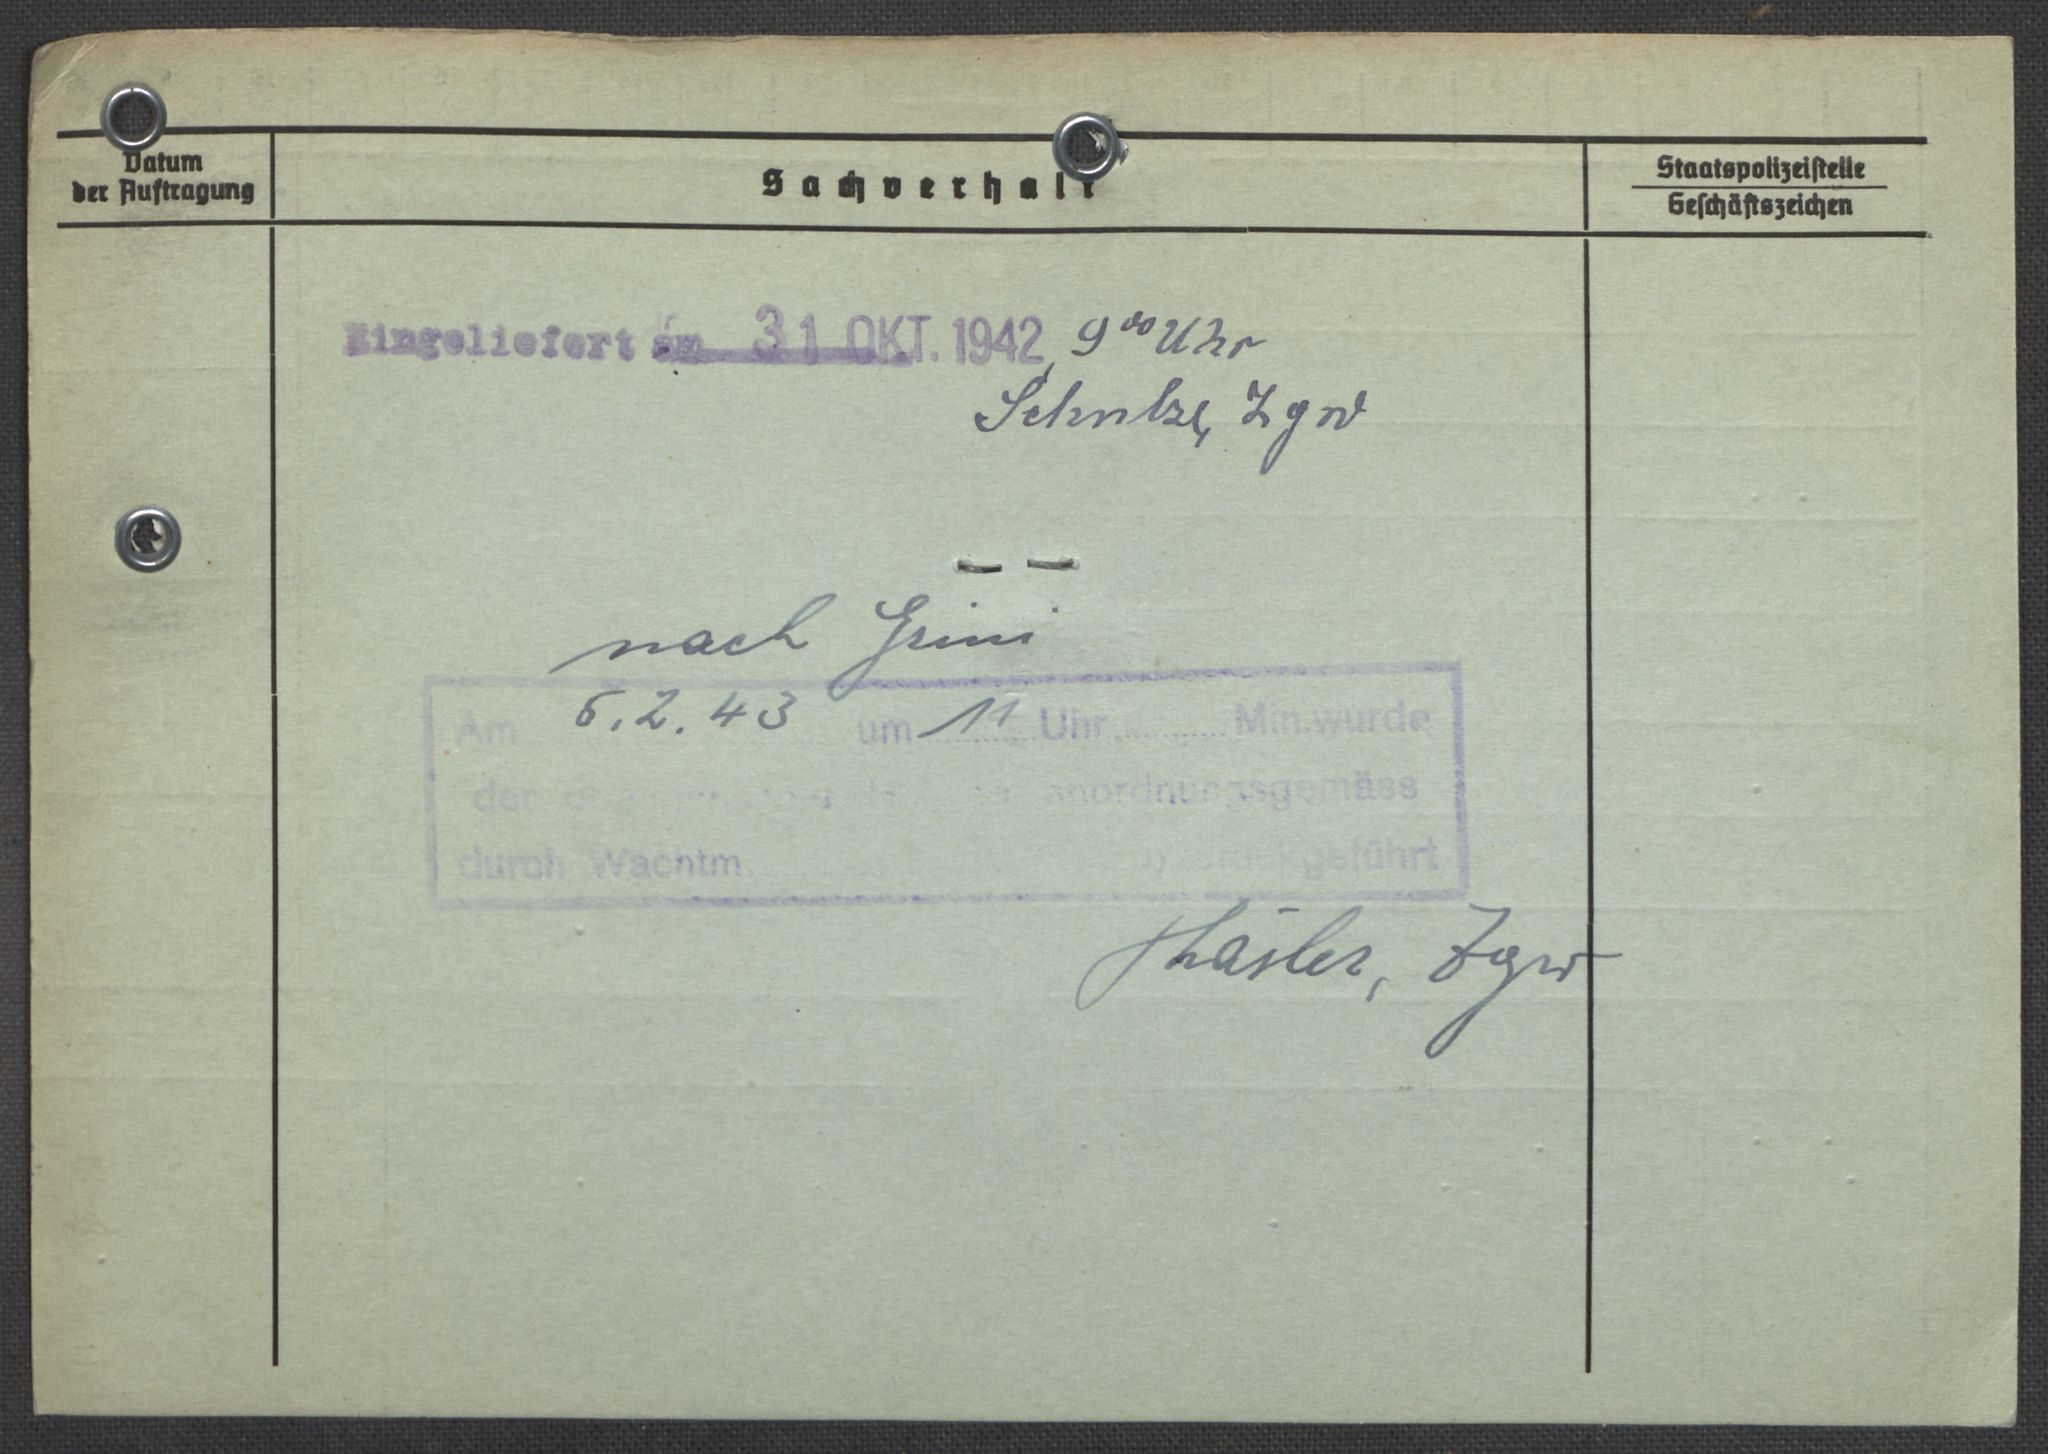 Datum
der Auftragung
Sachverhalt
Staatspolizeistelle
Geschäftszeichen
Eingeliefert am 31 OKT. 1942, 9⁰⁰ Uhr
Schulze, Zgw
nach Grini
Am 6.2.43 um 11 Uhr Min. wurde
der anordnungsgemäss
durch Wachtm.
Häsler, Zgw